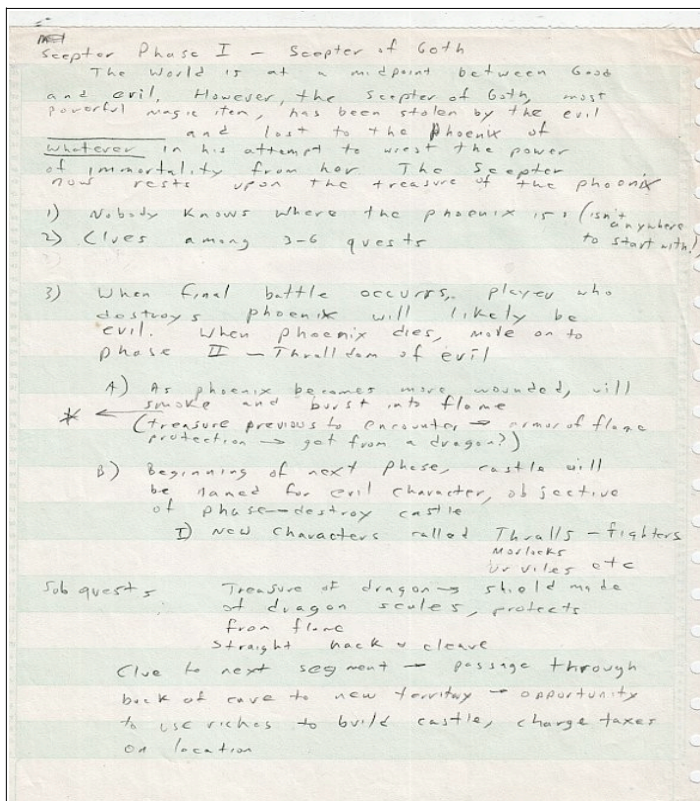 Scepter Phase I - Scepter of Goth
The World is at a midpoint between Good
and evil. However, the scepter of Goth, most
powerful magic item, has been stolen by the evil
________ and lost to the Phoenix of
whatever in his attempt to wrest the power
of immortality from her. The Scepter
now rests upon the treasure of the phoenix
1) Nobody knows where the phoenix is: (isn't
anywhere
to start with!)
2) Clues among 3-6 quests
3) When final battle occurrs, player who
destroys phoenix will likely be
evil. When phoenix dies, move on to
phase II - Thralldom of evil
A) As phoenix becomes more wounded, will
smoke and burst into flame
* ← (treasure previous to encounter → armor of flame
protection → get from a dragon?)
B) Beginning of next phase, castle will
be named for evil character, objective
of phase - destroy castle
I) New characters called Thralls - fighters
Morlocks
Urviles etc
Sub quests Treasure of dragon → shield made
of dragon scales, protects
from flame
straight hack & cleave
Clue to next segment - passage through
back of cave to new territory - opportunity
to use riches to build castle, charge taxes
on location